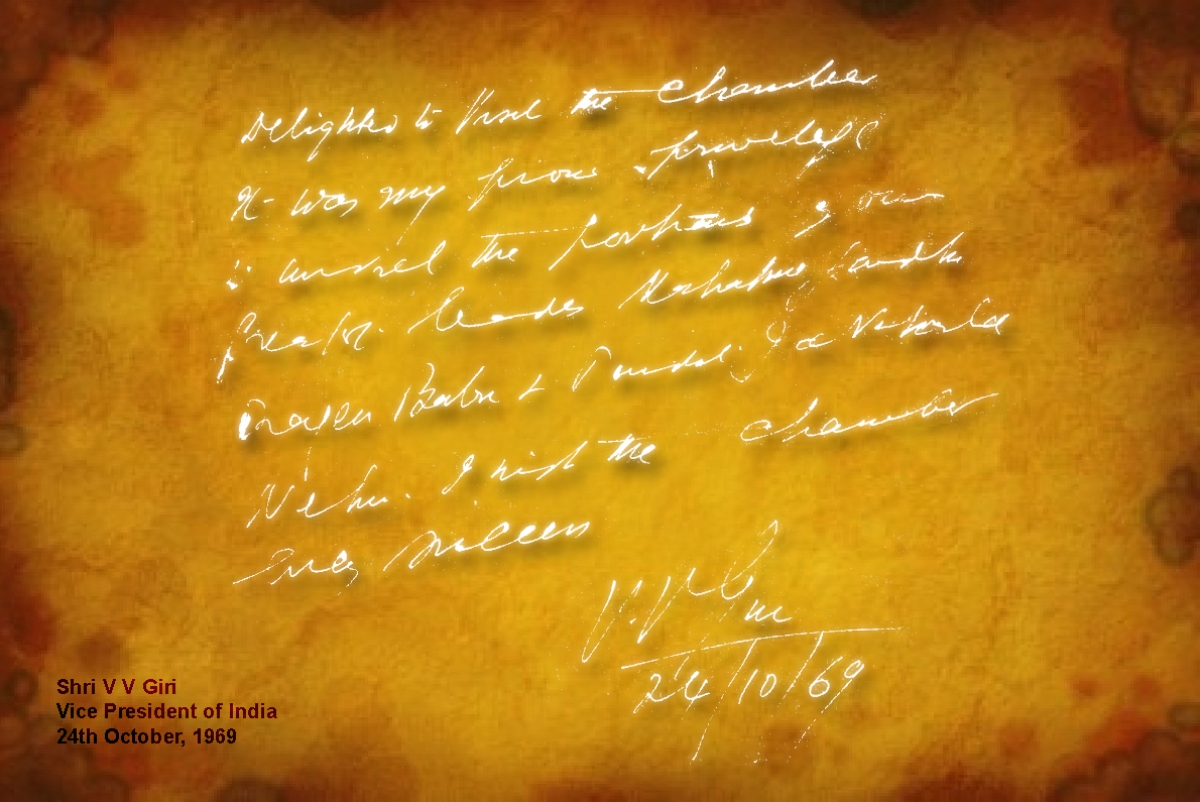 Delighted to Visit the Chamber
It was my proud privilege
to unveil the portraits of our
Greatest leaders Mahatma Gandhi
Rajen Babu & Pandit Jawaharlal
Nehru. I wish the chamber
Every Success
V.V. Giri
24/10/69
Shri V V Giri
Vice President of India
24th October, 1969